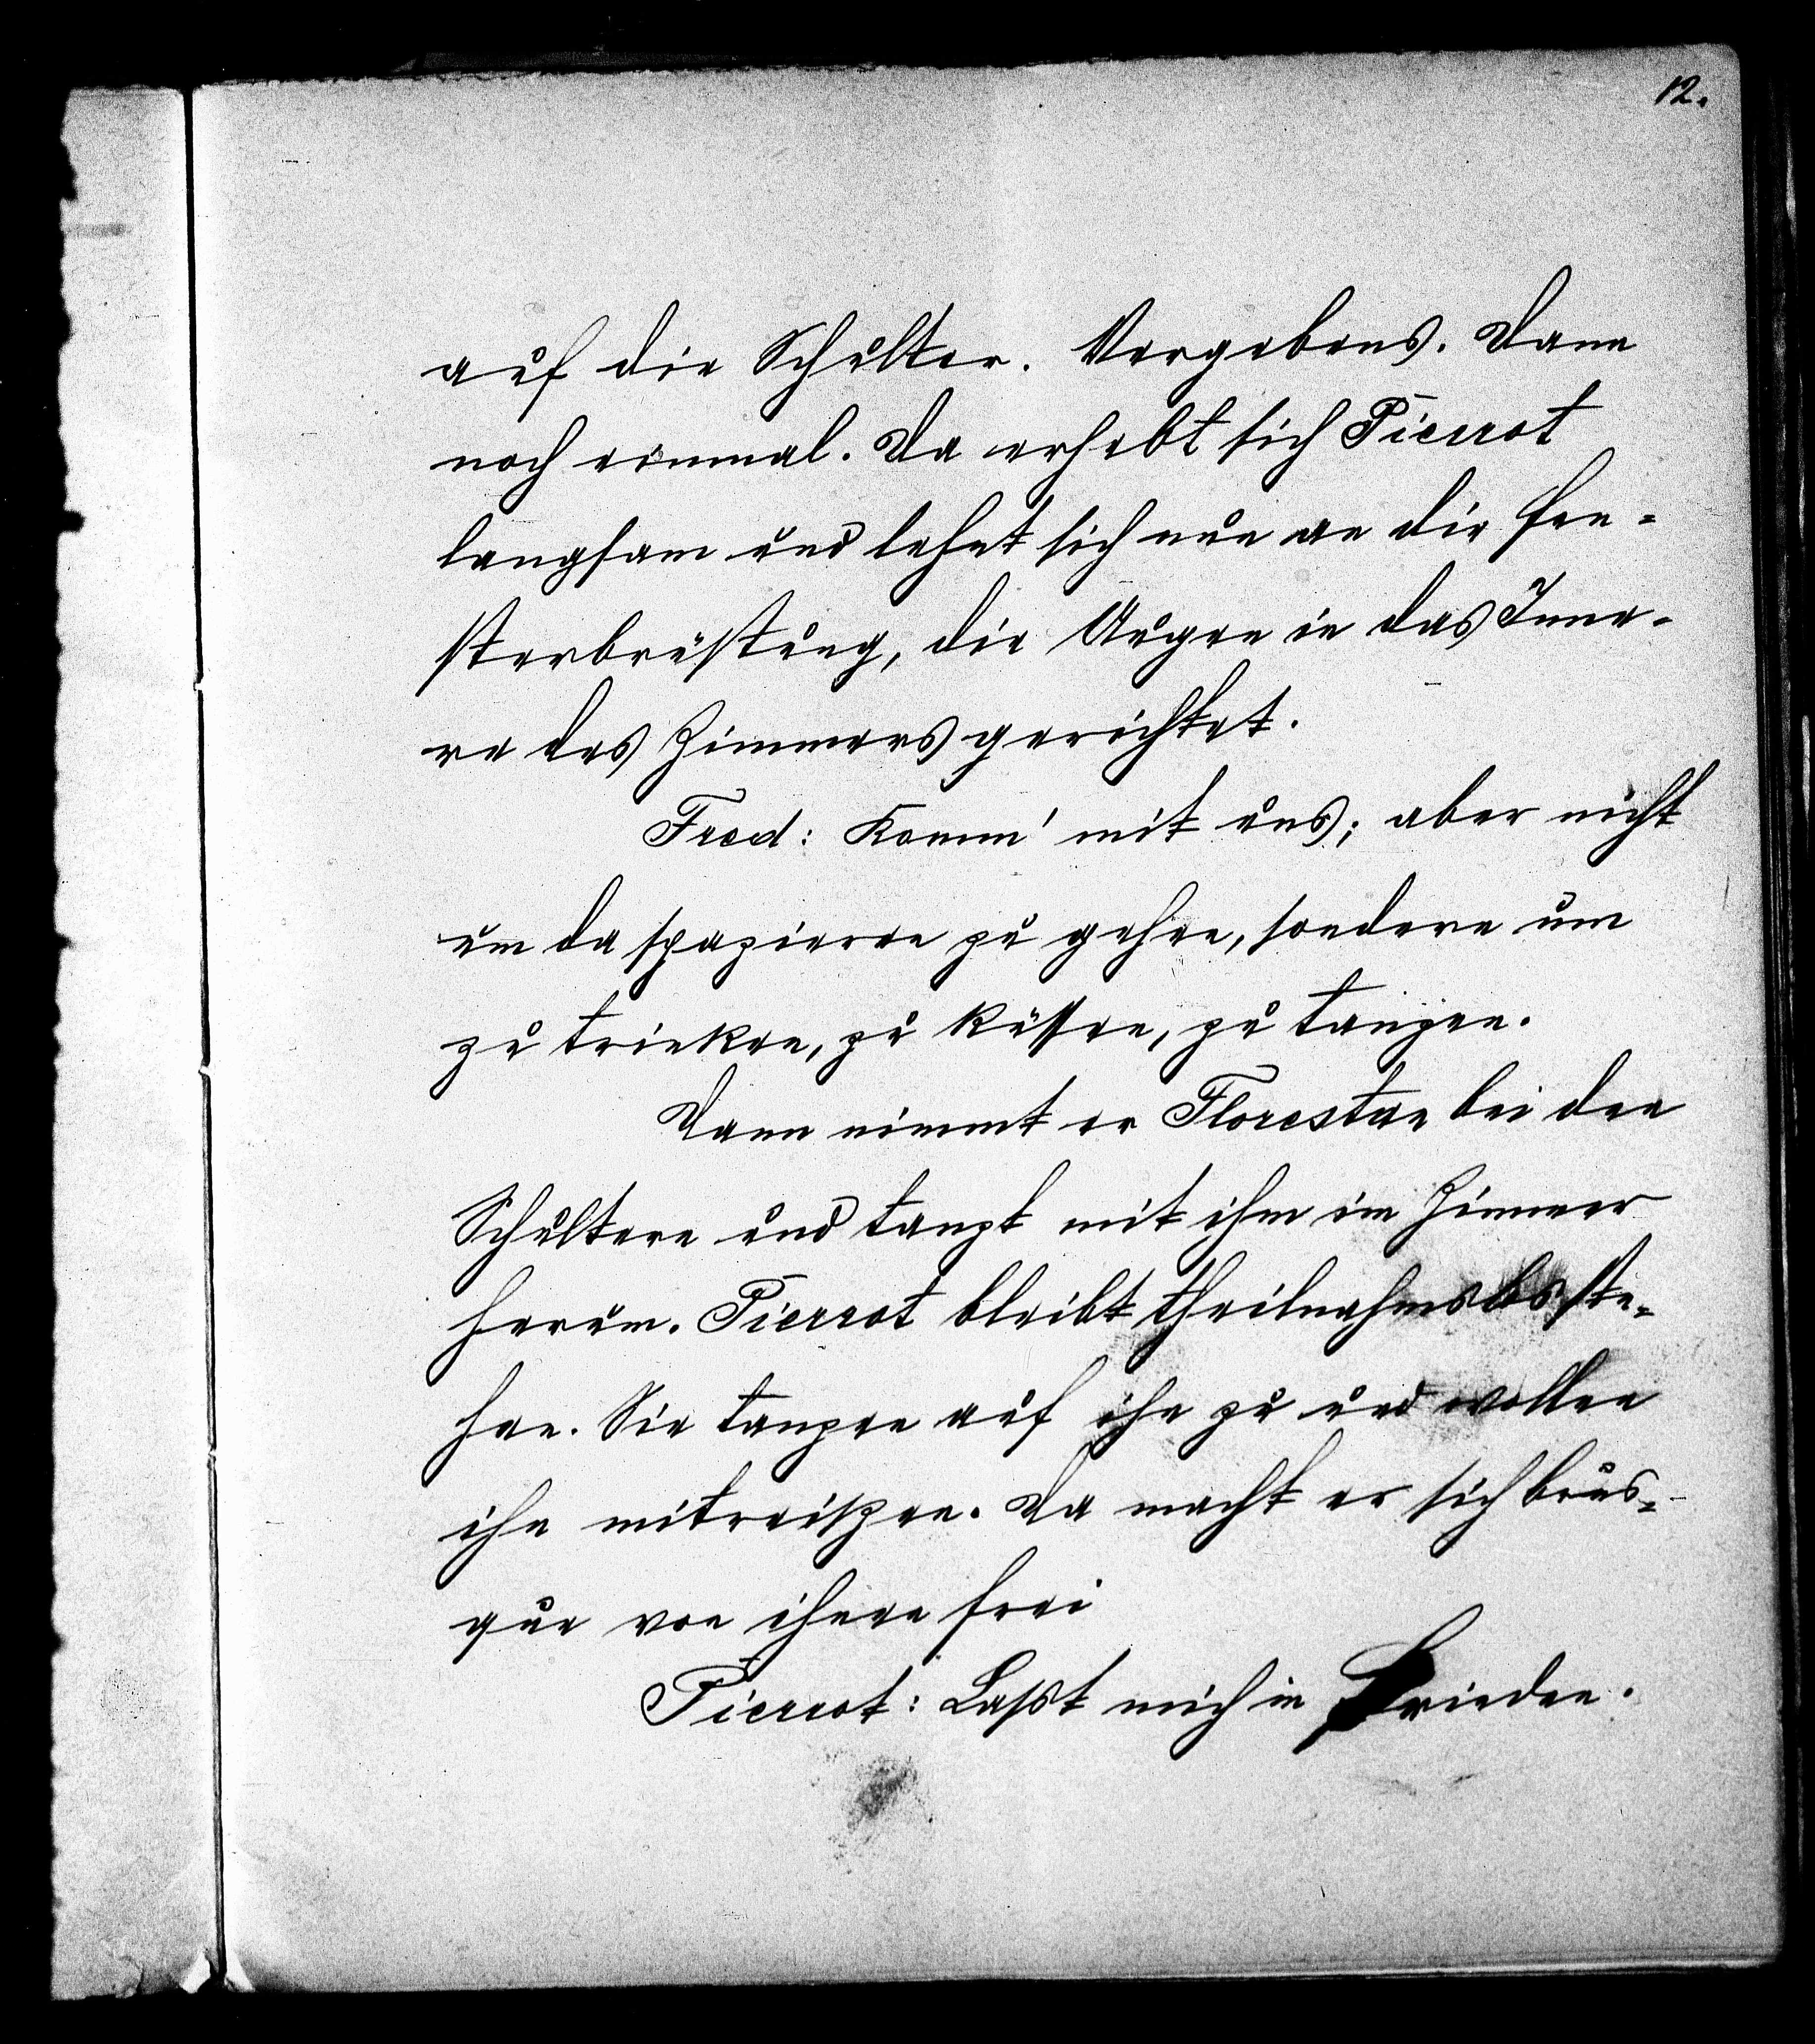 12.
auf die Schulter. Vergebens. Dann
noch einmal. Da erhebt sich Pierrot
langsam und lehnt sich nun an die Fen=
sterbrüstung, die Augen in das Inne=
re des Zimmers gerichtet.
Fred: Komm' mit uns; aber nicht
um da spazieren zu gehen, sondern um
zu trinken, zu küssen, zu tanzen.
Dann nimmt er Florestan bei den
Schultern und tanzt mit ihm im Zimmer
herum. Pierrot bleibt theilnahmslos ste=
hen. Sie tanzen auf ihn zu und wollen
ihn mitreißen. Da macht er sich brus=
que von ihnen frei
Pierrot: Laßt mich in Frieden.